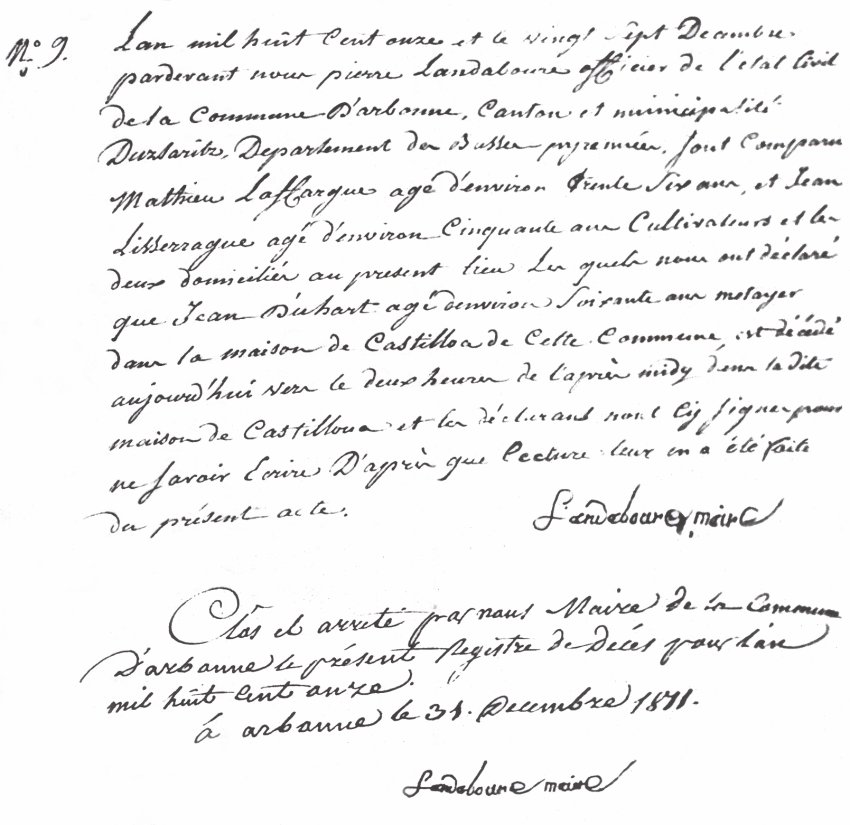 N.º 9.
Lan mil huit Cent onze et le vingt sept Decembre
pardevant nous pierre Landaboure officier de l'état Civil
de la Commune D'arbonne, Canton et municipalité
Duztaritz, Departement des Basses pyrennées, sont Comparu
Mathieu Laffargue agé d'environ trente Six ans, et Jean
Lisserrague agé d'environ Cinquante ans Cultivateurs et les
deux domiciliés au present lieu Les quels nous ont déclaré
que Jean D'uhart agé denviron Soixante ans metayer
dans la maison de Castilloa de Cette Commune, est décédé
aujourd'hui vers le deux heures de l'après midy dans la dite
maison de Castilloua et les déclarans nont signer pour
ne savoir Ecrire D'après que lecture leur en a été faite
du présent acte.
Landaboure, maire
Clos et arreté par nous Maire de la Commune
D'arbonne le présent Registre de Décés pour l'an
mil huit Cent onze.
à arbonne le 31. Decembre 1811.
Landaboure maire